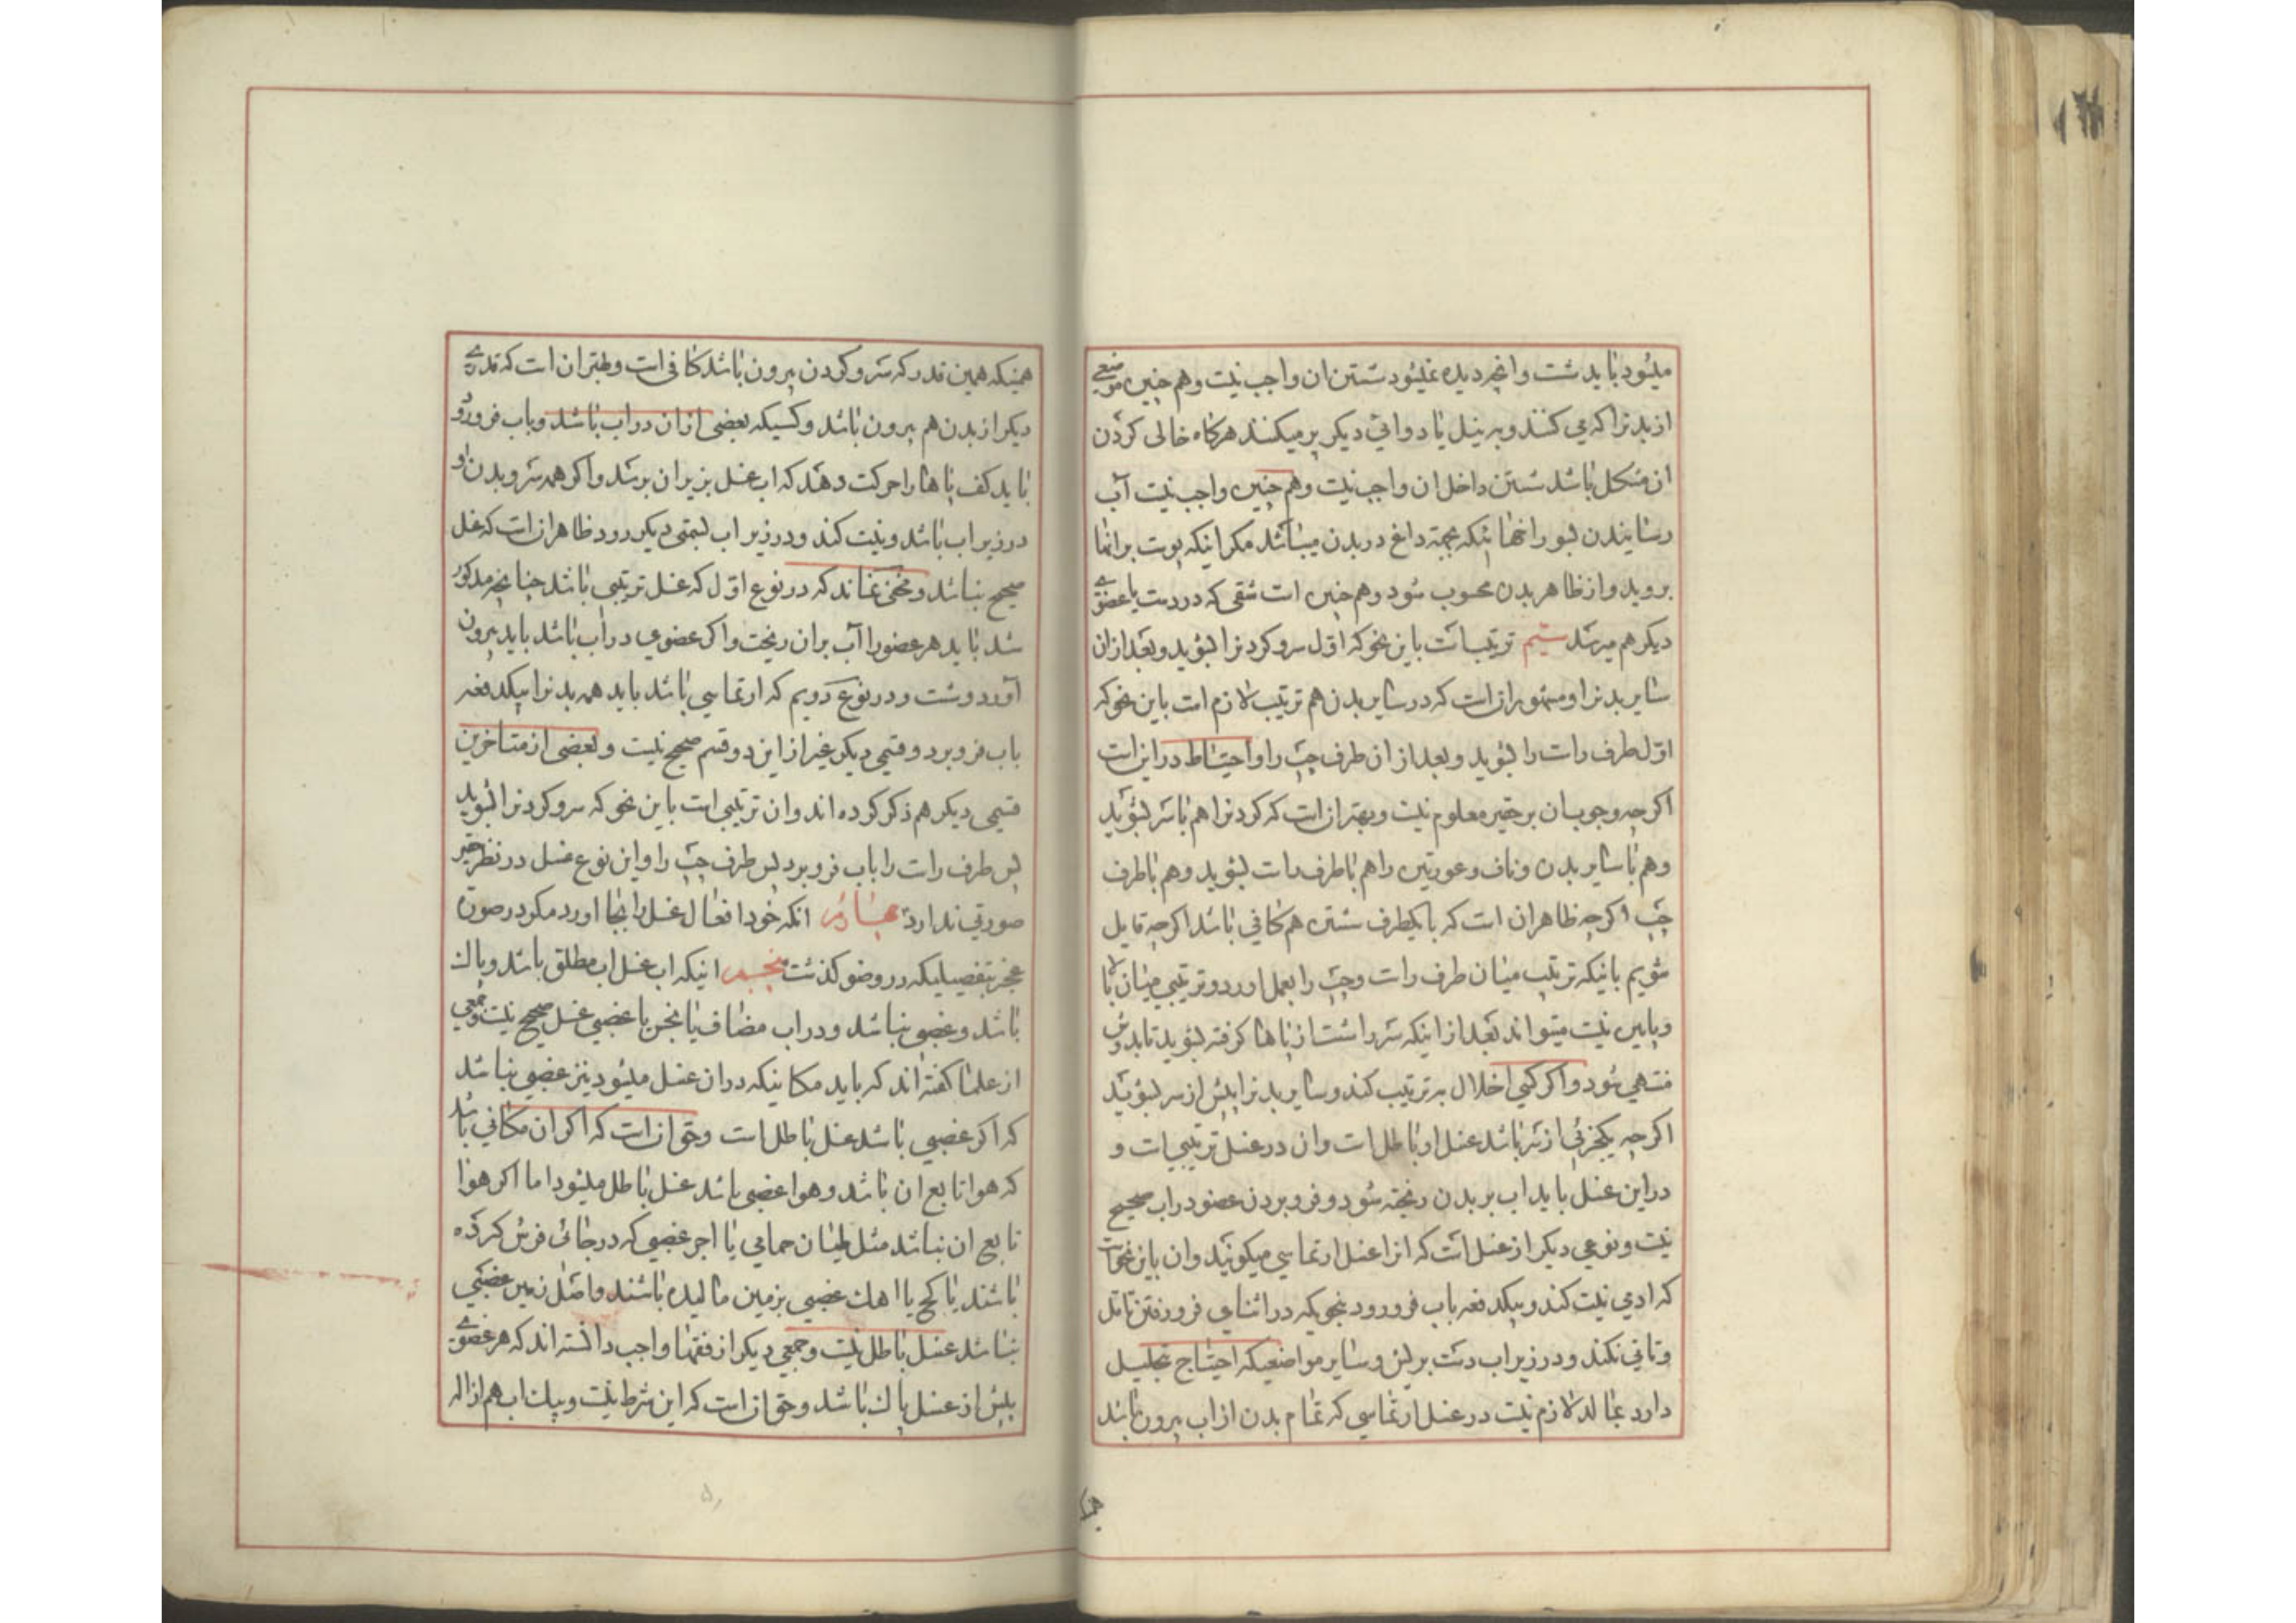 میشود باید شست و انچه دیده نمیشود شستن ان واجب نیست و هم چنین موضعی
از بدنرا که می کنند و به نیل یا دوائی دیکر پر میکنند هرکاه خالی کردن
ان مشکل باشد شستن داخل ان واجب نیست و هم چنین واجب نیست آب
رسانیدن بسوراخها ئیکه بجهة داغ در بدن میباشد مکر اینکه پوست برانها
بروید و از ظاهر بدن محسوب شود و هم چنین است شقی که در دست یا عضوی
دیکر هم میرسد سیم ترتیب است باین نحو که اول سر و کردنرا بشوید و بعد از ان
سایر بدنرا و مشهور انست که در سایر بدن هم ترتیب لازم است باین نحو که
اول طرف راست را بشوید و بعد از ان طرف چپ را و احتیاط در این است
اکرچه وجوبسان بر حقیر معلوم نیست و بهتر انست که کردنرا هم با سر بشوید
و هم با سایر بدن و ناف و عورتین را هم با طرف راست بشوید و هم با طرف
چپ اکرچه ظاهر ان است که با یکطرف شستن هم کافی باشد اکرچه قایل
شویم باینکه ترتیب میان طرف راست و چپ را بعمل اورد و ترتیبی میان بالا
و پایین نیست میتواند بعد از اینکه سر را شست از پاها کرفته بشوید تا بدوش
منتهی شود و اکر کسی اخلال به ترتیب کند و سایر بدنرا پیش از سر بشوید
اکرچه یکجزئی از سر باشد غسل او باطل است و ان در غسل ترتیبی است و
در این غسل باید اب بر بدن ریخته شود و فرو بردن عضو در اب صحیح
نیست و نوعی دیکر از غسل است که انرا غسل ارتماسی میکویند و ان باین نحو است
که ادمی نیت کند و بیکدفعه باب فرو رود بنحویکه در اثنای فرو رفتن تامل
و تانی نکند و در زیر اب دست بر لبن و سایر مواضعیکه احتیاج بتخلیل
دارد بمالد لازم نیست در غسل ارتماسی که تمام بدن از اب بیرون باشد
همینکه
همینکه همین قدر که سر و کردن بیرون باشد کافی است و بهتر ان است که قدری
دیکر از بدن هم بیرون باشد و کسیکه بعضی از ان در اب باشد و باب فرو رود
باید کف پاها را حرکت دهد که اب غسل بزیر ان برسد و اکر همه سر و بدن او
در زیر اب باشد و نیت کند و در زیر اب بسمتی دیکر رود ظاهر انست که غسل
صحیح نباشد و مخفی نماند که در نوع اول که غسل ترتیبی باشد چنانچه مذکور
شد باید هر عضو را آب بر ان ریخت و اکر عضوی در اب باشد باید بیرون
آورد و شست و در نوع دویم که ارتماسی باشد باید همه بدنرا بیکدفعه
باب فرو برد و قسمی دیکر غیر از این دو قسم صحیح نیست و بعضی از متاخرین
قسمی دیکر هم ذکر کرده اند و ان ترتیبی است باین نحو که سر و کردنرا بشوید
پس طرف راست را باب فرو برد پس طرف چپ را و این نوع غسل در نظر حقیر
صورتی ندارد چهارم انکه خود افعال غسل را بجا اورد مکر در صورت
عجز بتفصیلیکه در وضو کذشت پنجم اینکه اب غسل اب مطلق باشد و پاک
باشد و غصبی نباشد و در اب مضاف یا نجس یا غصبی غسل صحیح نیست و جمعی
از علما کفته اند که باید مکانیکه در ان غسل میشود نیز غصبی نباشد
که اکر غصبی باشد غسل باطل است و حق انست که اکر ان مکانی باشد
که هوا تابع ان باشد و هوا غصبی باشد غسل باطل میشود اما اکر هوا
تابع ان نباشد مثل طیان حمامی یا اجر غصبی که در جائی فرش کرده
باشند یا کچ یا اهک غصبی بزمین مالیده باشند و اصل زمین غصبی
نباشد غسل باطل نیست و جمعی دیکر از فقها واجب دانسته اند که هر عضوی
پیش از غسل پاک باشد و حق انست که این شرط نیست و بیک اب هم ازاله